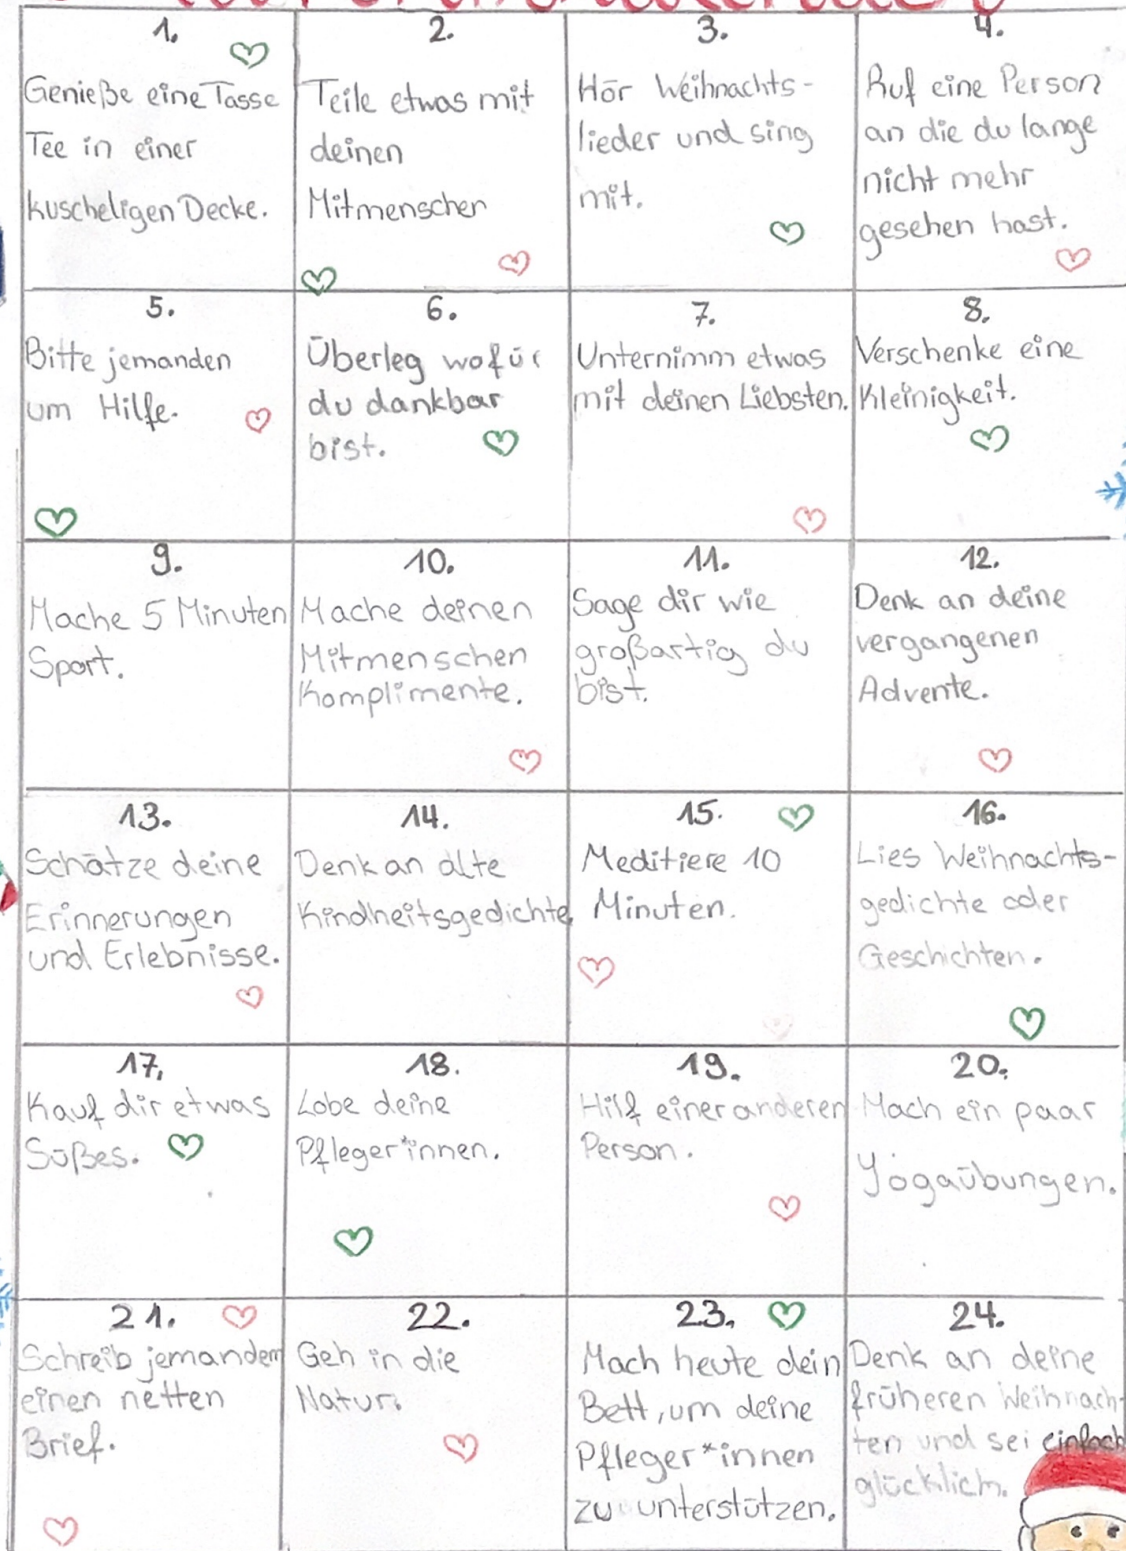 1.
Genieße eine Tasse
Tee in einer
kuscheligen Decke.
2.
Teile etwas mit
deinen
Mitmenschen
3.
Hör Weihnachts-
lieder und sing
mit.
4.
Ruf eine Person
an die du lange
nicht mehr
gesehen hast.
5.
Bitte jemanden
um Hilfe.
6.
Überleg wofür
du dankbar
bist.
7.
Unternimm etwas
mit deinen Liebsten.
8.
Verschenke eine
Kleinigkeit.
9.
Mache 5 Minuten
Sport.
10.
Mache deinen
Mitmenschen
Komplimente.
11.
Sage dir wie
großartig du
bist.
12.
Denk an deine
vergangenen
Advente.
13.
Schätze deine
Erinnerungen
und Erlebnisse.
14.
Denk an alte
Kindheitsgedichte
15.
Meditiere 10
Minuten.
16.
Lies Weihnachts-
gedichte oder
Geschichten.
17.
Kauf dir etwas
Süßes.
18.
Lobe deine
Pfleger*innen.
19.
Hilf einer anderen
Person.
20.
Mach ein paar
Yogaübungen.
21.
Schreib jemandem
einen netten
Brief.
22.
Geh in die
Natur.
23.
Mach heute dein
Bett, um deine
Pfleger*innen
zu unterstützen.
24.
Denk an deine
früheren Weihnach-
ten und sei einfach
glücklich.